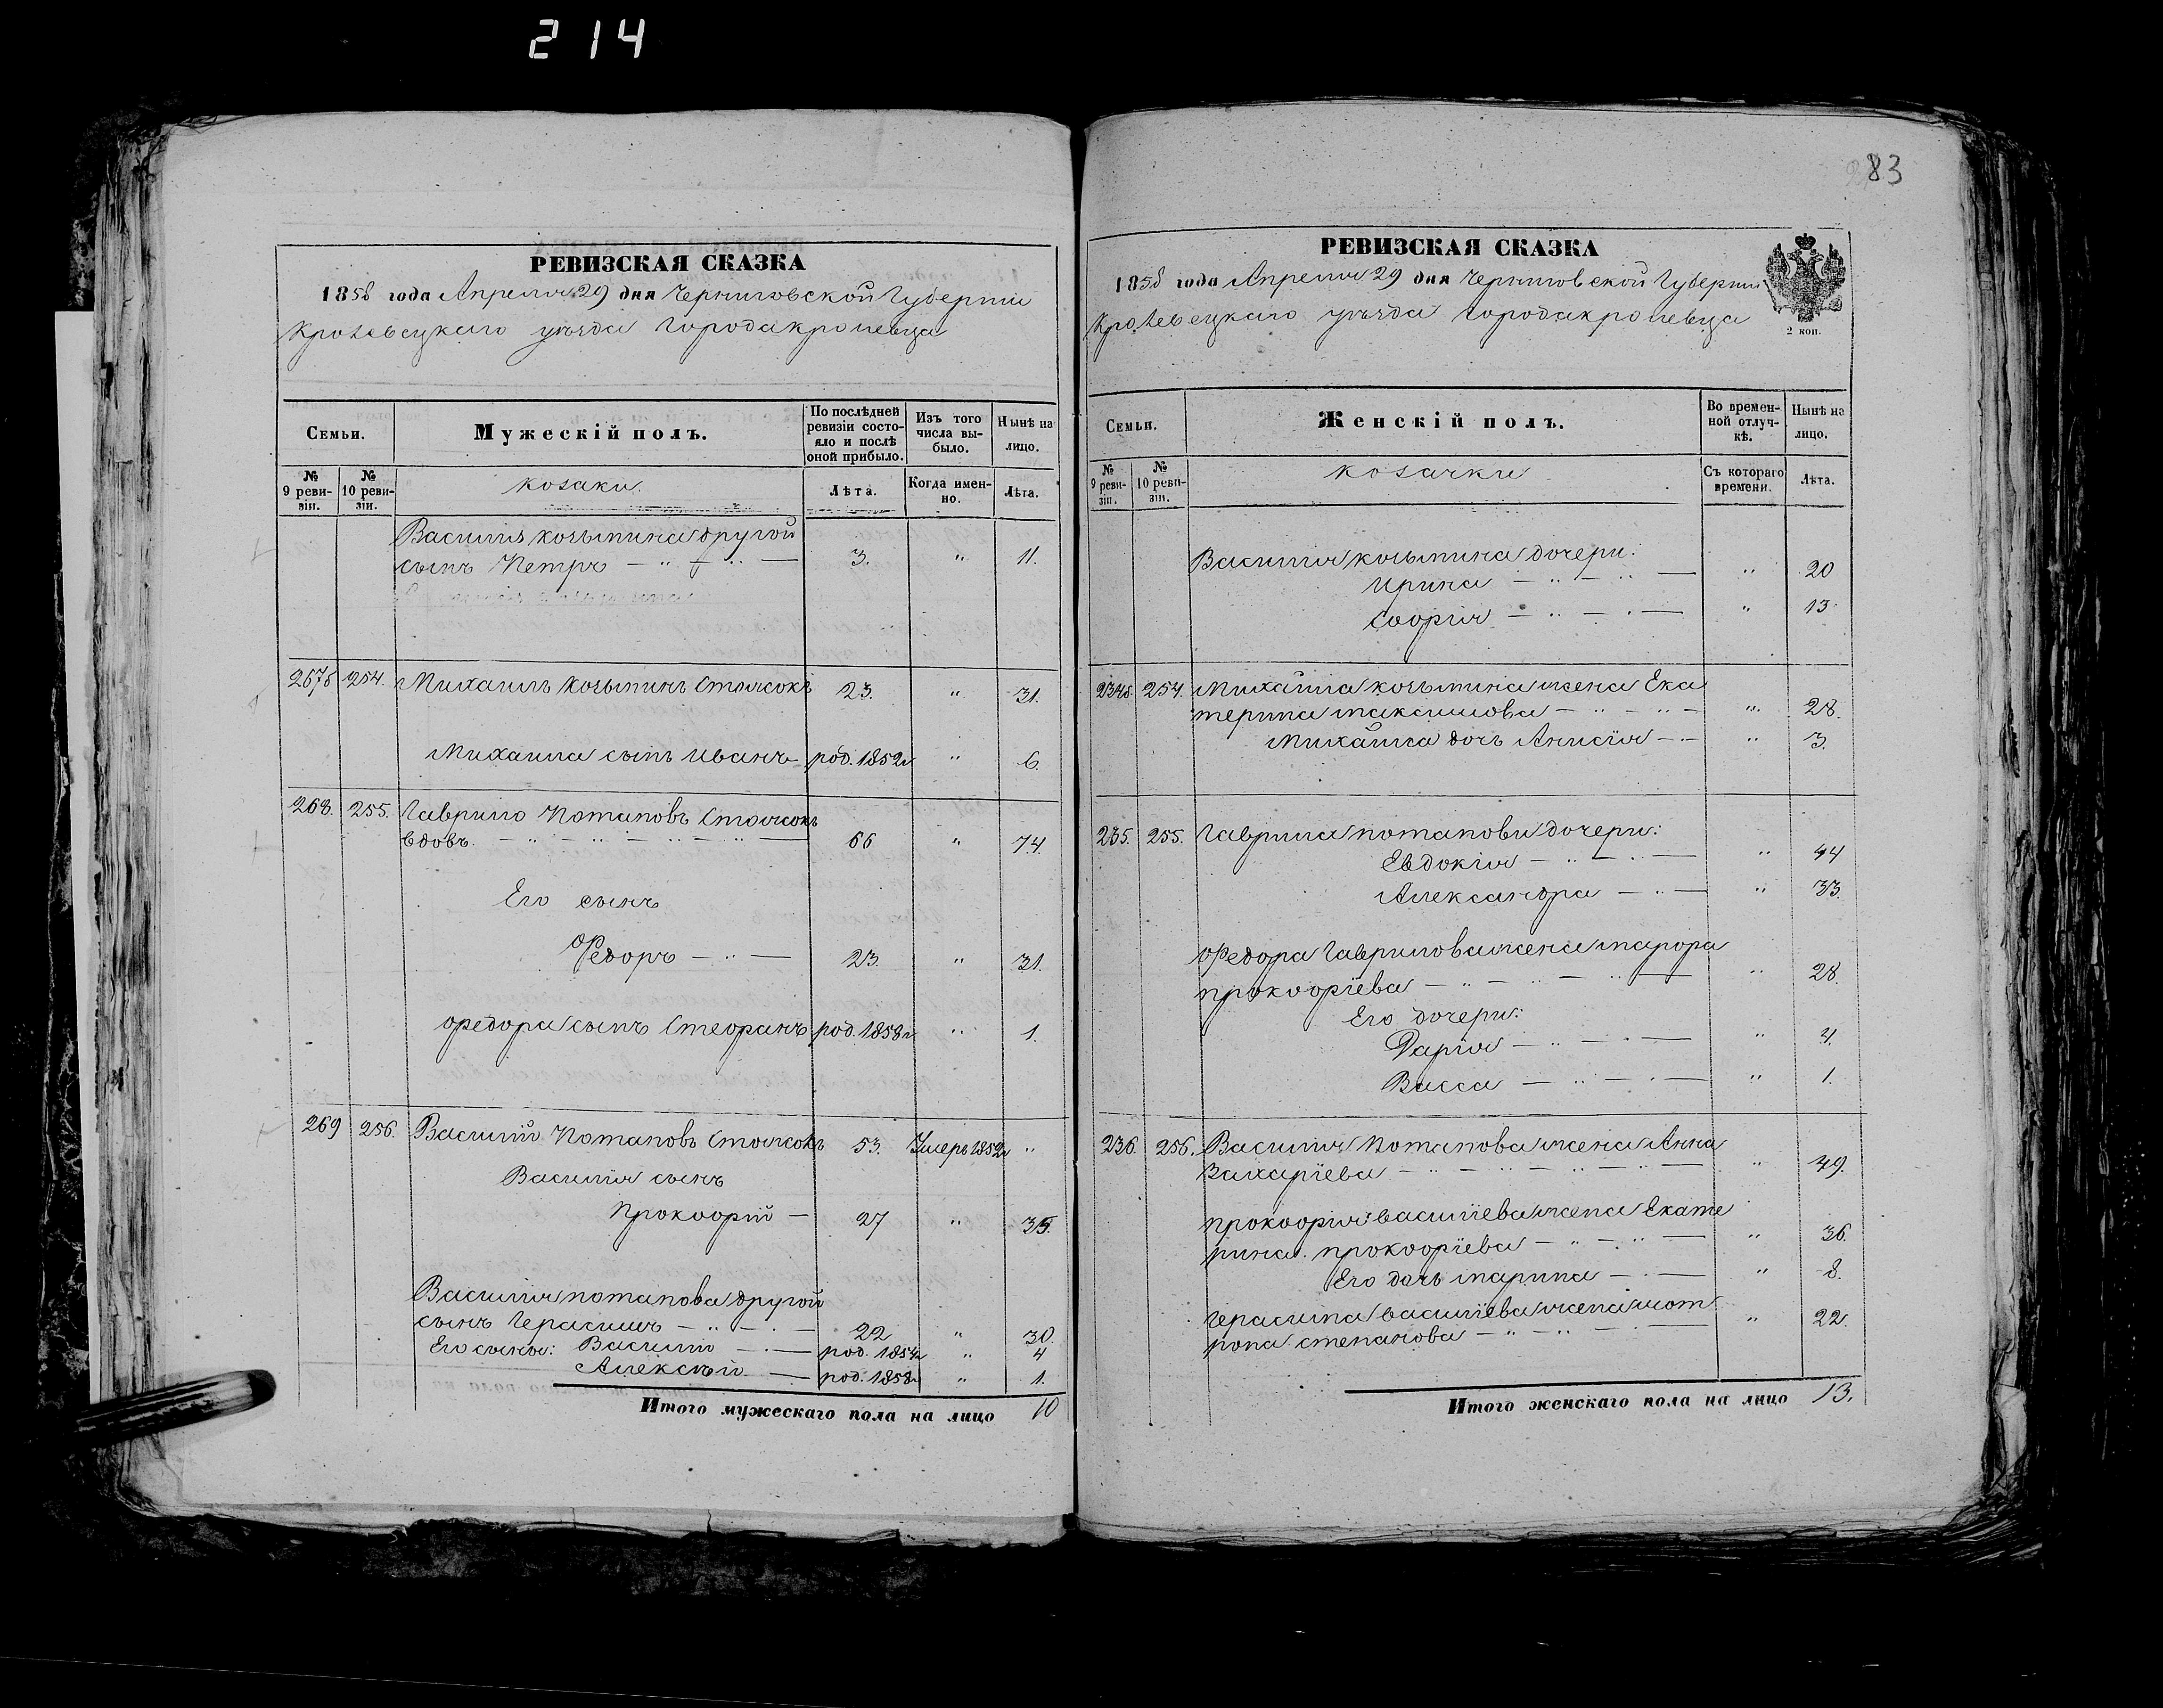 214
РЕВИЗСКАЯ СКАЗКА
1858 года Апреля 29 дня Черниговской Губернии
Кролевецкаго уѣзда города кролевца
Семьи.
Мужескій полъ.
По послѣдней ревизіи состояло и послѣ оной прибыло.
Изъ того числа выбыло.
Нынѣ на лицо.
№ 9 ревизіи.
№ 10 ревизіи.
козаки.
Лѣта.
Когда именно.
Лѣта.
Василія козьмина другой
сынъ Петръ — " — " — 3. " 11.
267 254. Михаилъ Козьминъ 23. " 31.
Михаила сынъ Иванъ род. 1852 г " 6.
268. 255. Гаврило Потаповъ
вдовъ. — " — " — " — " — 66 " 74.
Его сынъ
Федоръ — " — 23. " 31.
Федора сынъ Стефанъ род. 1858 г " 1.
269 256. Василий Потаповъ 53. Умеръ 1852 г "
Василия сынъ
Прокофий — 27 " 35.
Василия потапова другой
сынъ Герасимъ — " — · — 22 " 30.
Его сыны: Василий — · — род. 1854 г " 4
Алексѣй — род. 1858 г " 1.
Итого мужескаго пола на лицо 10
83
РЕВИЗСКАЯ СКАЗКА
1858 года Апреля 29 дня Черниговской Губернии
Кролевецкаго уѣзда города кролевца
2 коп.
Семьи.
Женскій полъ.
Во временной отлучкѣ.
Нынѣ на лицо.
№ 9 ревизіи.
№ 10 ревизіи.
козачки
Съ котораго времени.
Лѣта.
Василия козьмина дочери:
Ирина — " — " — " 20
София — " — · — " 13.
254. Михайла козьмина жена Ека
терина максимова — " — " — " 28.
Михайла дочь Анисія — · — " 3.
235. 255. Гаврила потапова дочери:
Евдокія — " — · — " 44
Александра — " — " 33.
Федора Гаврилова жена марфа
прокофіева — " — " — " — " 28.
Его дочери:
Дарія — " — · — " 4.
Васса — " — · — " 1.
236. 256. Василия Потапова жена Анна
Захаріева — " — " — " — " — " 49.
прокофия василіева жена Екате
рина прокофіева — " — " — " 36.
Его дочь марина — · — " 8.
Герасима василіева жена мот
рона степанова — " — " — · — " 22.
Итого женскаго пола на лицо 13.